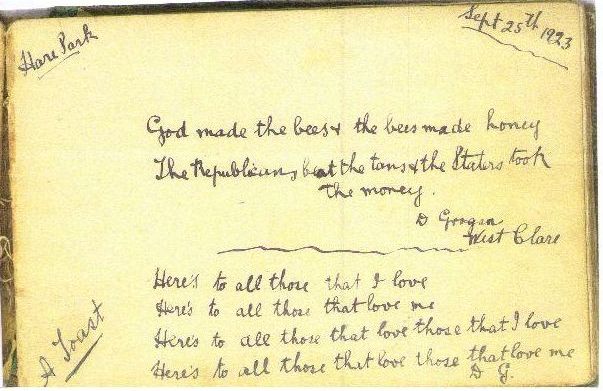 Hare Park
Sept 25th 1923
God made the bees & the bees made honey
The Republicans beat the tans & the Staters took
the money.
D Grogan
West Clare
A Toast
Here's to all those that I love
Here's to all those that love me
Here's to all those that love those that I love
Here's to all those that love those that love me
D G.